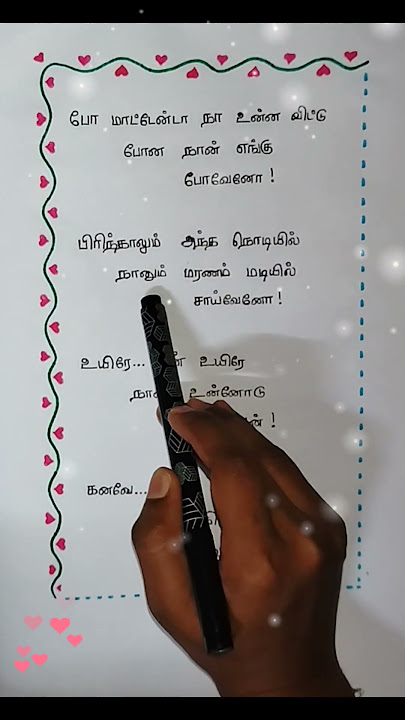 போ மாட்டேன்டா நா உன்ன விட்டு
போன நான் எங்கு
போவேனோ !
பிரிந்தாலும் அந்த நொடியில்
நானும் மரணம் மடியில்
சாய்வேனோ !
உயிரே... உயிரே
உன்னோடு
!
கனவே...